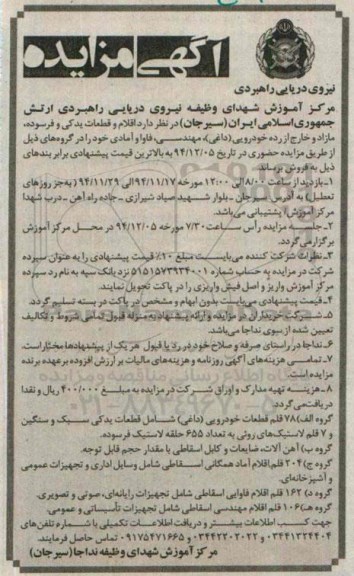 آگهی مزایده
نیروی دریایی راهبردی
مرکز آموزش شهدای وظیفه نیروی دریایی راهبردی ارتش
جمهوری اسلامی ایران (سیرجان) در نظر دارد اقلام و قطعات یدکی و فرسوده،
مازاد و خارج از رده خودرویی (داغی)، مهندسی، فاوا و آمادی خود را در گروه‌های ذیل
از طریق مزایده حضوری در تاریخ ۹۴/۱۲/۰۵ به بالاترین قیمت پیشنهادی برابر بندهای
ذیل به فروش رساند.
۱- بازدید از ساعت ۸/۰۰ الی ۱۲:۰۰ مورخه ۹۴/۱۱/۱۷ الی ۹۴/۱۱/۲۹ (به جز روزهای
تعطیل) به آدرس سیرجان - بلوار شهید صیاد شیرازی - جاده راه آهن - درب شهدا
مرکز آموزش) پشتیبانی می‌باشد.
۲- جلسه مزایده رأس ساعت ۷/۳۰ مورخه ۹۴/۱۲/۰۵ در محل مرکز آموزش
برگزار می‌گردد.
۳- نظرات شرکت کننده می‌بایست مبلغ ۱۰٪ قیمت پیشنهادی را به عنوان سپرده
شرکت در مزایده به حساب شماره ۵۱۵۱۵۷۳۹۳۴۰۰۱ نزد بانک سپه به نام رد سپرده
مرکز آموزش واریز و اصل فیش واریزی را در پاکت تحویل نمایند.
۴- قیمت پیشنهادی می‌بایست بدون ابهام و مشخص در پاکت در بسته تسلیم گردد.
۵- شرکت خریداران در مزایده و ارائه پیشنهاد به منزله قبول تمامی شروط و تکالیف
تعیین شده از سوی نداجا می‌باشد.
۶- نداجا در راستای صرفه و صلاح خود در رد یا قبول هر یک از پیشنهادها مختار است.
۷- تمامی هزینه‌های آگهی روزنامه و هزینه‌های مالیات بر ارزش افزوده بر عهده برنده
مزایده است.
۸- هزینه تهیه مدارک و اوراق شرکت در مزایده به مبلغ ۴۰۰/۰۰۰ ریال و نقدا
دریافت می‌گردد.
گروه الف) ۷۸ قلم قطعات خودرویی (داغی) شامل قطعات یدکی سبک و سنگین
و ۷ قلم لاستیک‌های روتی به تعداد ۶۵۵ حلقه لاستیک فرسوده.
گروه ب) آهن آلات، ضایعات و کابل اسقاطی با مقدار حجم قابل توجه.
گروه ج) ۲۰۴ قلم اقلام آماد همگانی اسقاطی شامل وسایل اداری و تجهیزات عمومی
و آشپزخانه‌ای.
گروه د) ۱۶۲ قلم اقلام فاوایی اسقاطی شامل تجهیزات رایانه‌ای، صوتی و تصویری.
گروه هـ) ۱۰۶ قلم اقلام مهندسی اسقاطی شامل تجهیزات تأسیساتی و عمومی.
جهت کسب اطلاعات بیشتر و دریافت اطلاعات تکمیلی با شماره تلفن‌های
۰۳۴۴۱۳۲۴۴۰۴ و ۰۳۴۴۲۲۰۲۰۲۲ و ۰۹۱۷۵۴۷۱۶۶۵ تماس حاصل فرمایند.
مرکز آموزش شهدای وظیفه نداجا (سیرجان)